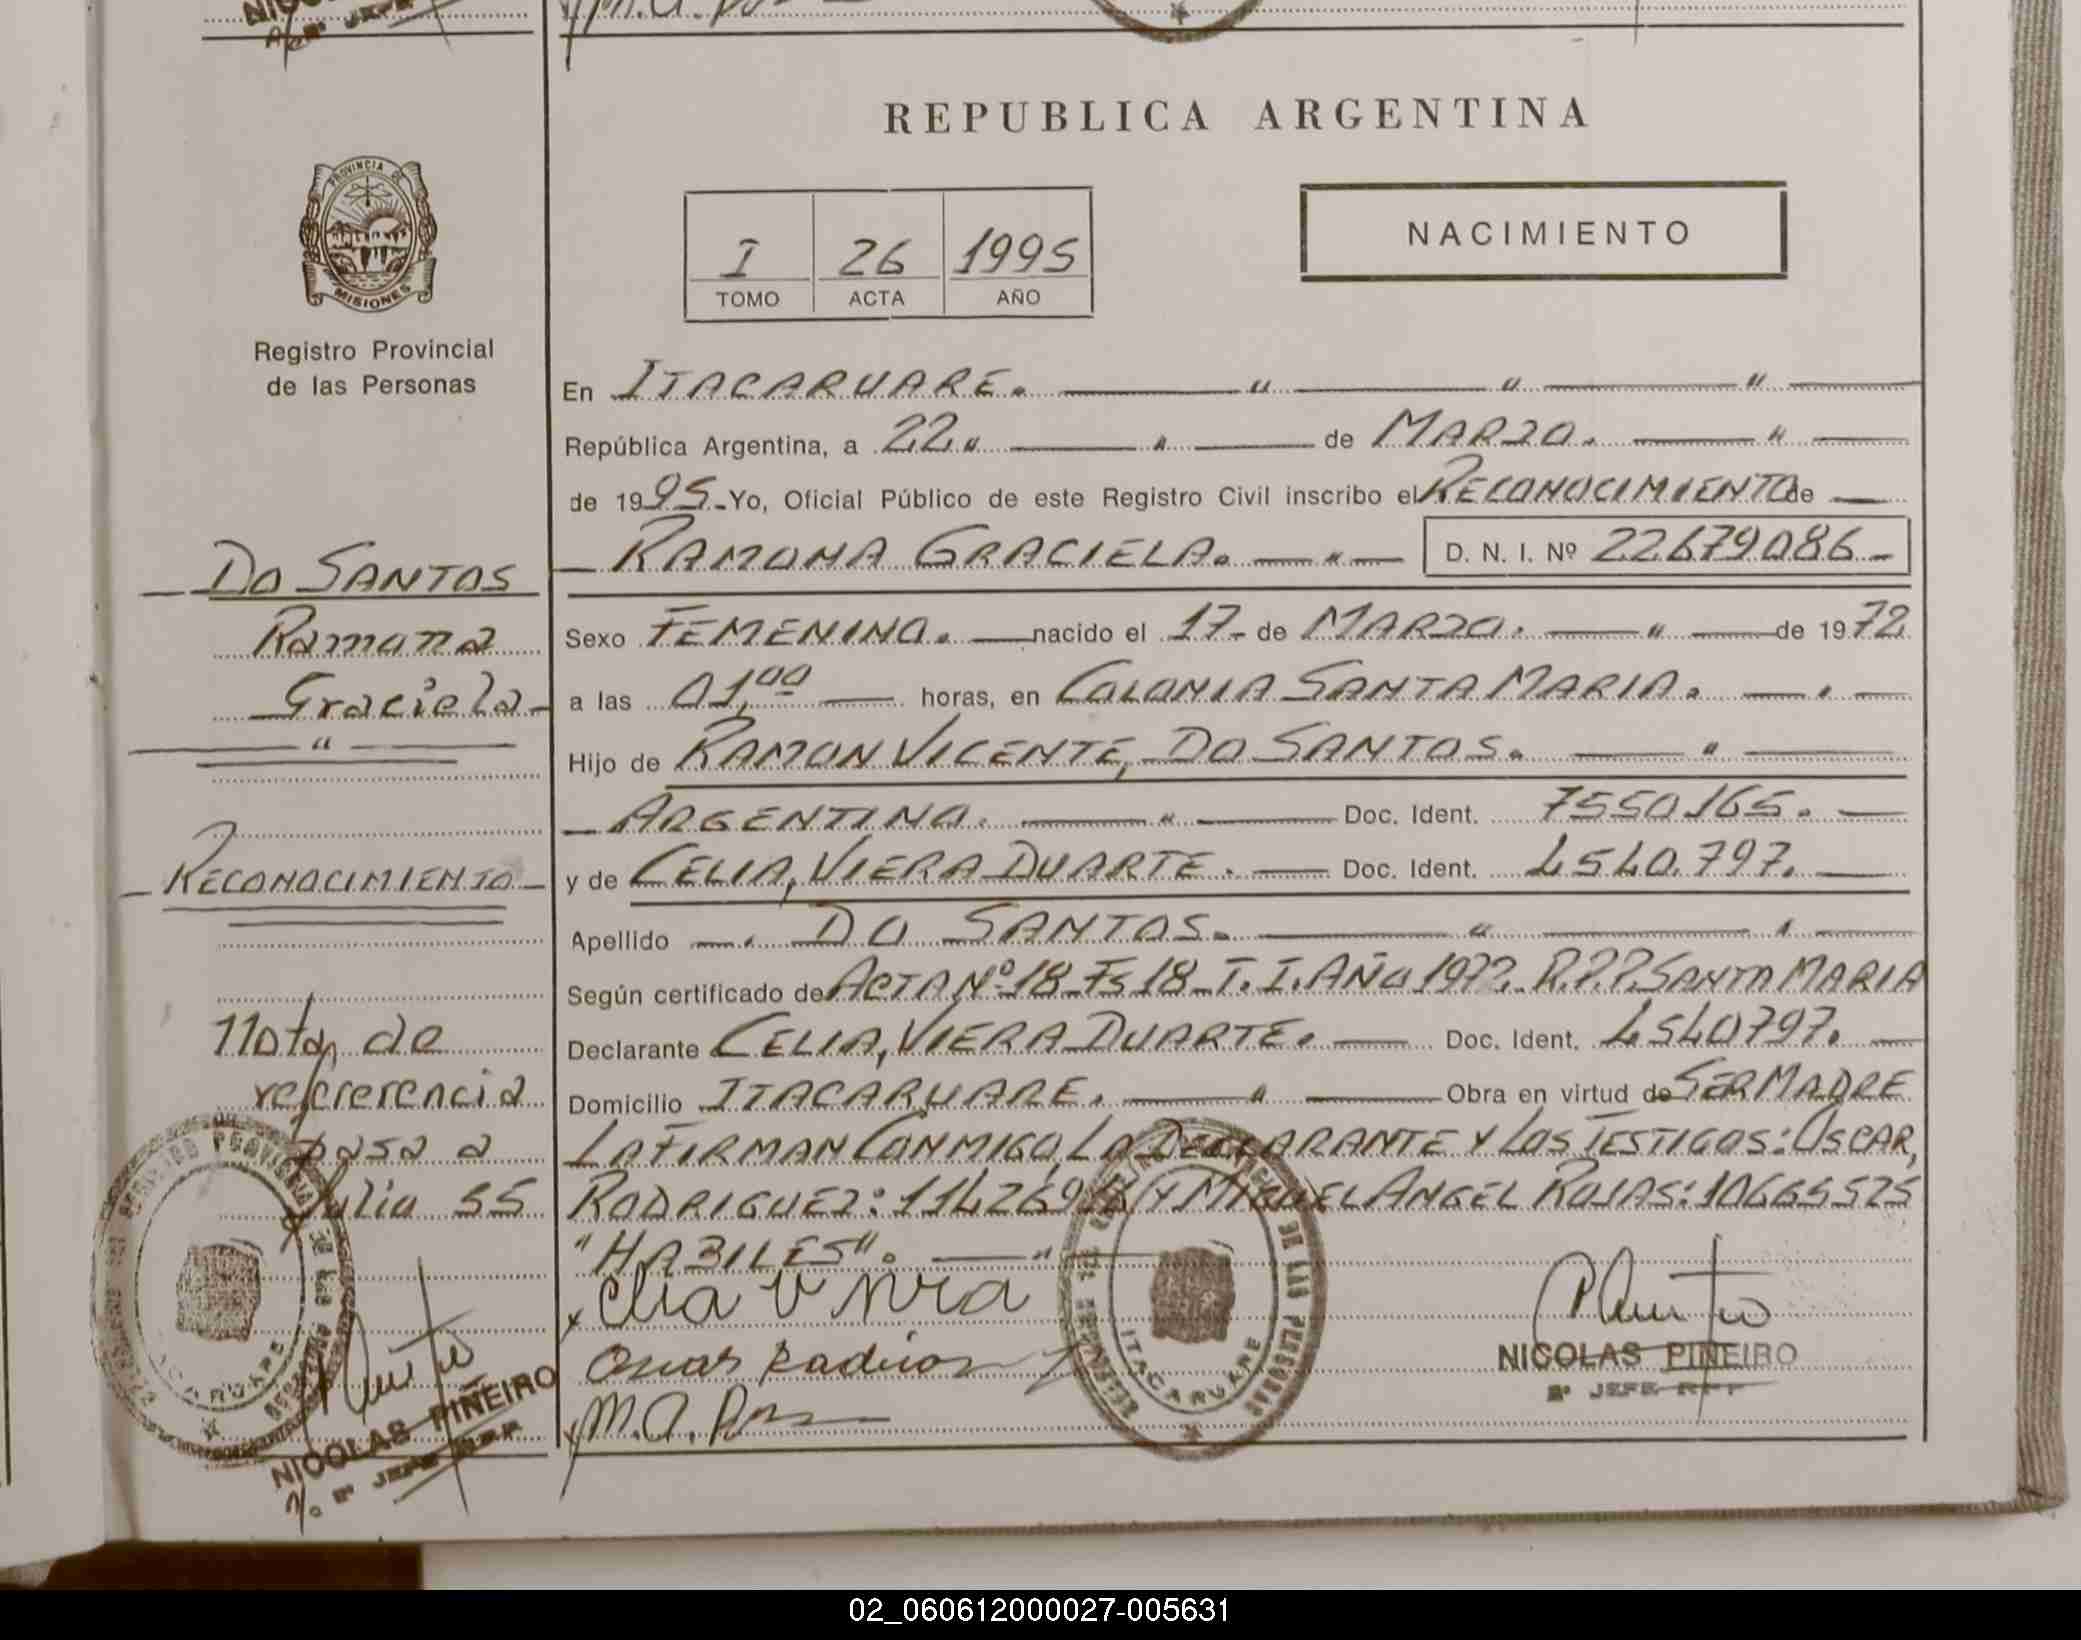 REPUBLICA ARGENTINA
PROVINCIA DE
MISIONES
Registro Provincial
de las Personas
I 26 1995
TOMO ACTA AÑO
NACIMIENTO
En ITACARUARE.
República Argentina, a 22 de MARZO.
de 1995 Yo, Oficial Público de este Registro Civil inscribo el RECONOCIMIENTO de
RAMONA GRACIELA. D. N. I. Nº 22679086
Sexo FEMENINO. nacido el 17 de MARZO. de 1972
a las 01,00 horas, en COLONIA SANTA MARIA.
Hijo de RAMON VICENTE, DO SANTOS.
ARGENTINO. Doc. Ident. 7550165.
y de CELIA, VIERA DUARTE. Doc. Ident. 4540.797.
Apellido DO SANTOS.
Según certificado de ACTA Nº 18 Fs 18 T. I. AÑO 1972. R.P.P. SANTA MARIA
Declarante CELIA, VIERA DUARTE. Doc. Ident. 4540797.
Domicilio ITACARUARE. Obra en virtud de SER MADRE
LA FIRMAN CONMIGO, LA DECLARANTE Y LOS TESTIGOS: OSCAR,
RODRIGUEZ: Y MIGUEL ANGEL ROJAS: 10665525
"HABILES".
NICOLAS PIÑEIRO
2º JEFE RPP
ITACARUARE
DO SANTOS
Ramona
Graciela
RECONOCIMIENTO
Nota de
referencia
pasa a
Julio 95
NICOLAS PIÑEIRO
02_060612000027-005631